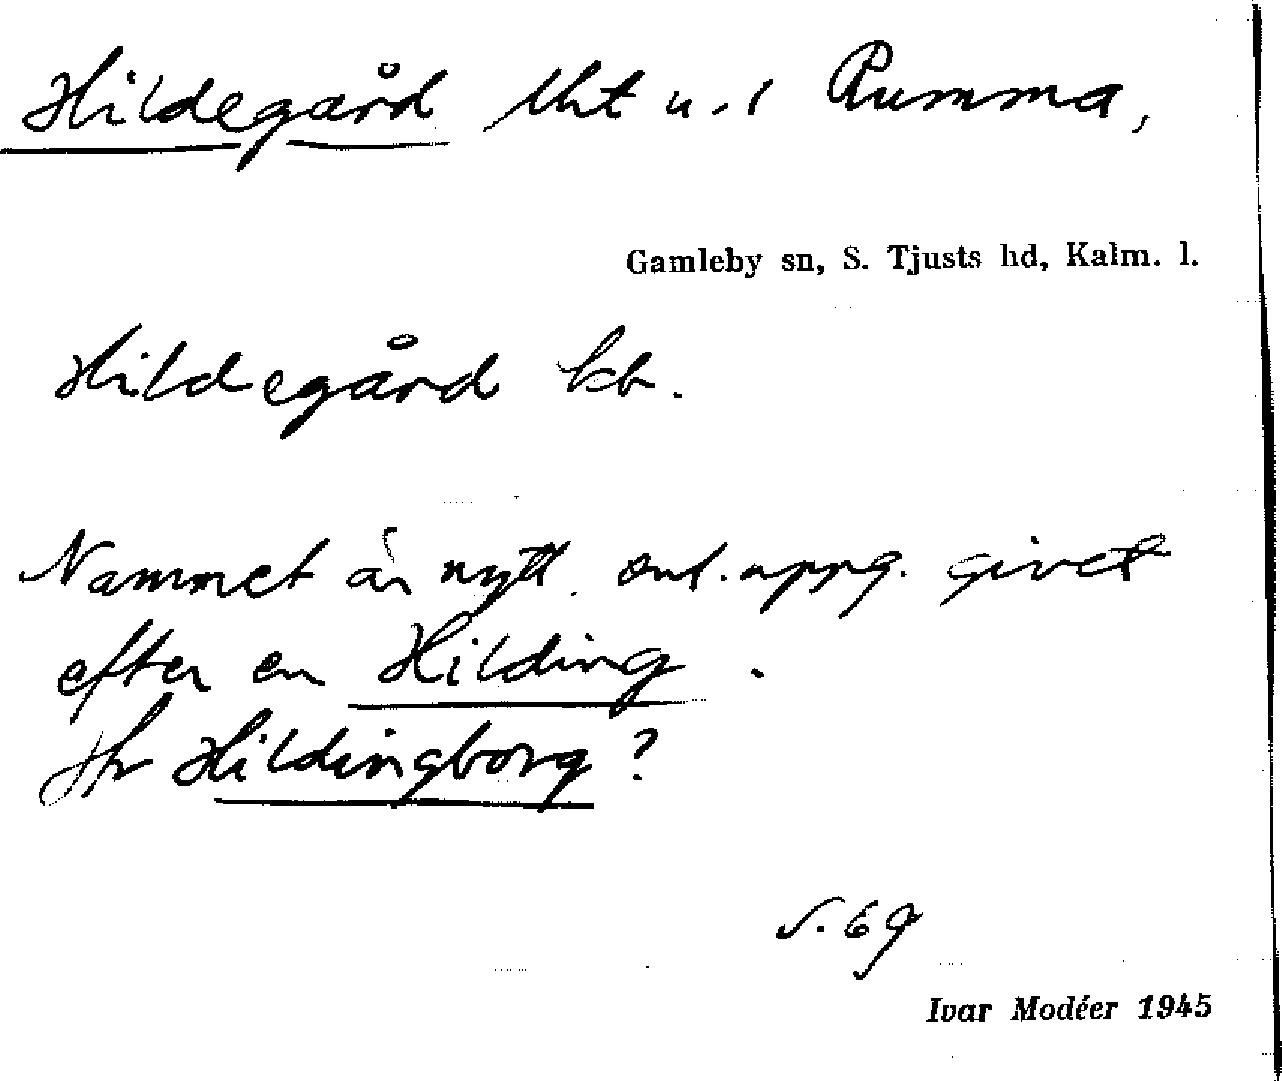 Hildegård lht u. l Rumma,
Gamleby sn, S. Tjusts hd, Kalm. l.
Hildegård kb.
Namnet är nytt. enl. uppg. givet
efter en Hilding.
Jfr Hildingborg?
s. 69
Ivar Modéer 1945